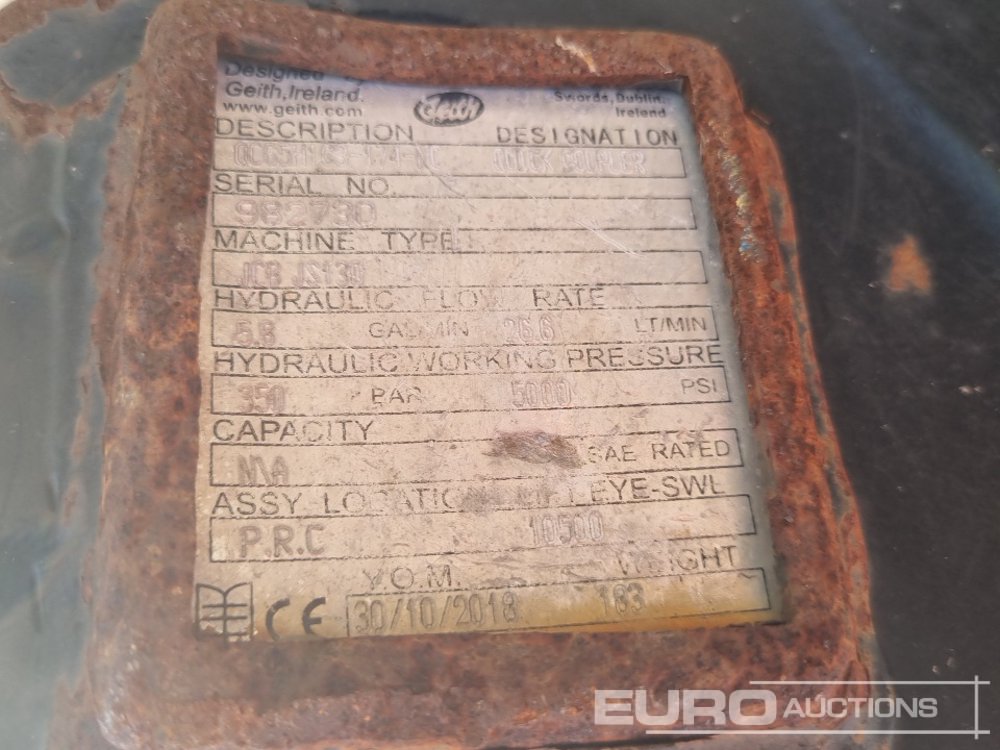 Designed by
Geith, Ireland.
www.geith.com
Geith
Swords, Dublin,
Ireland
DESCRIPTION DESIGNATION
QUICK COUPLER
SERIAL NO.
982730
MACHINE TYPE
JCB JS130
HYDRAULIC FLOW RATE
5.8 GAL/MIN 26.6 LT/MIN
HYDRAULIC WORKING PRESSURE
350 BAR 5000 PSI
CAPACITY
N\A SAE RATED
ASSY LOCATION LIFT EYE-SWL
P.R.C 10500
Y.O.M. WEIGHT
CE 30/10/2018 183
EURO AUCTIONS